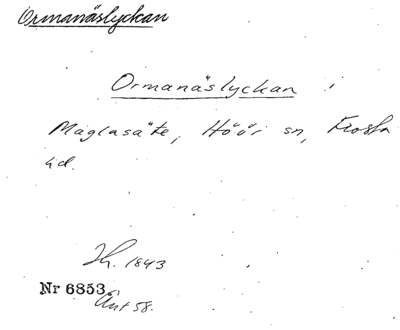 Ormanäslyckan
Ormanäslyckan i
Maglasäte, Höörs sn, Frosta
hd.
Jh. 1843
Nr 6853
Änt 58.